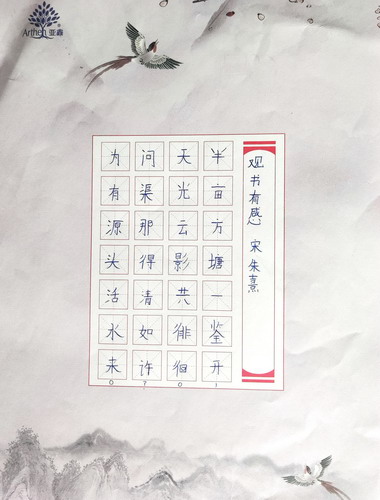 Arthen 亚森
观书有感 宋 朱熹
半亩方塘一鉴开
天光云影共徘徊
问渠那得清如许
为有源头活水来
0701